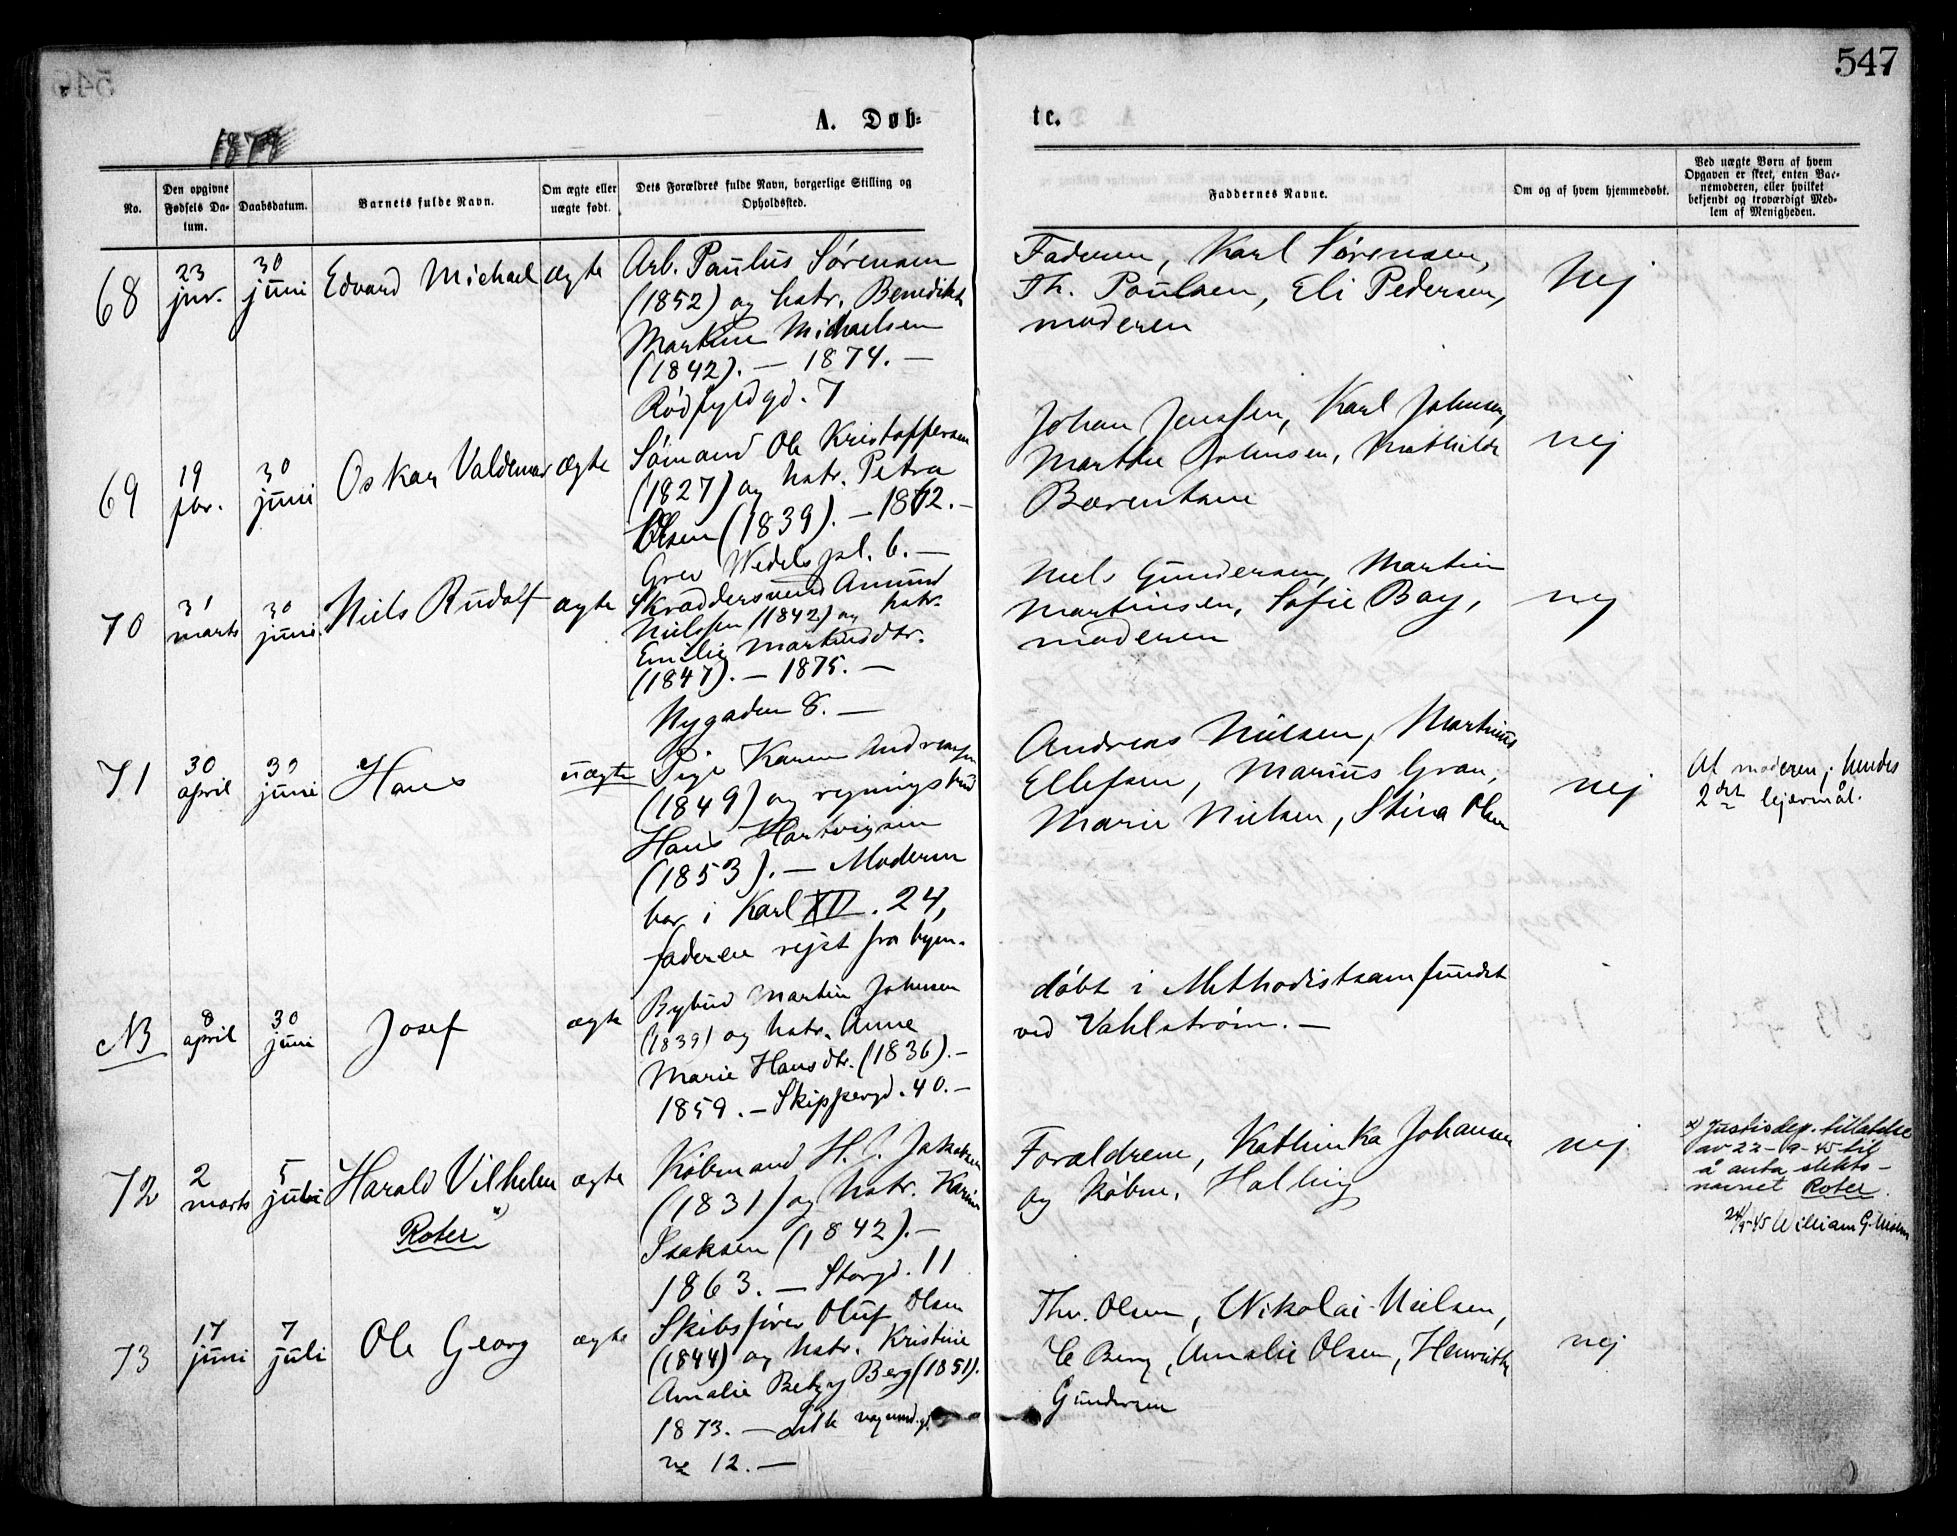 547
A. Døb-
te.
1879
No.
Den opgivne Fødsels Da-tum.
Daabsdatum.
Barnets fulde Navn.
Om ægte eller uægte født.
Dets Forældres fulde Navn, borgerlige Stilling og Opholdssted.
Faddernes Navne.
Om og af hvem hjemmedøbt.
Ved uægte Børn af hvem Opgaven er skeet, enten Bar-nemoderen, eller hvilket bekjendt og troværdigt Med-lem af Menigheden.
68
23 jnr.
30 juni
Edvard Michael
ægte
Arb. Paulus Sørensen
(1852) og hstr. Benedikte
Martine Michaelsen
(1842). — 1874. —
Rødfyldgd. 7
Faderen, Karl Sørensen,
Th. Paulsen, Eli Pedersen,
moderen
Nej
69
19 fbr.
30 juni
Oskar Valdemar
ægte
Sømand Ole Kristoffersen
(1827) og hstr. Petra
Olsen (1839). — 1862. —
Grev Wedels pl. 6. —
Johan Jenssen, Karl Johnsen,
Marthe Johnsen, Mathilde
Bærentsen
nej
70
31 marts
30 juni
Niels Rudolf
ægte
Skræddersvend Amund
Nielssen (1842) og hstr.
Emilie Martinsdtr.
(1847). — 1875. —
Nygaden 8. —
Niels Gundersen, Martin
Martinsen, Sofie Bay,
moderen
nej
71
30 april
30 juni
Hans
uægte
Pige Karen Andreassen
(1849) og rejningsbud
Hans Hartvigsen
(1853). — Moderen
bor i Karl XII. 24,
faderen rejst fra byen.
Andreas Nielsen, Martinus
Ellefsen, Marius Gran,
Marie Nielsen, Stina Olsen
nej
Af moderen; hendes
2det lejermål.
NB
8 april
30 juni
Josef
ægte
Bybud Martin Johnsen
(1839) og hstr. Anne
Marie Hansdtr. (1836). —
1859. — Skippergd. 40. —
døbt i Methodistsamfundet
ved Vahlstrøm. —
72
2 marts
5 juli
Harald Vilhelm
Roter x)
ægte
Købmand H. C. Jakobsen
(1831) og hstr. Karine
Isaksen (1842). —
1863. — Storgd. 11
Forældrene, Kathinka Johansen
og købm. Halling
nej
x) Justisdep. tillatelse
av 22-9-45 til
å anta slekts-
navnet Roter.
24/9 45 William G. Nissen
73
17 juni
7 juli
Ole Georg
ægte
Skibsfører Oluf Olsen
(1844) og hstr. Kristine
Amalie Betzy Berg (1851).
1873. —
№ 12. —
Thv. Olsen, Nikolai Nielsen,
C Berg, Amalie Olsen, Henriette
Gundersen
nej